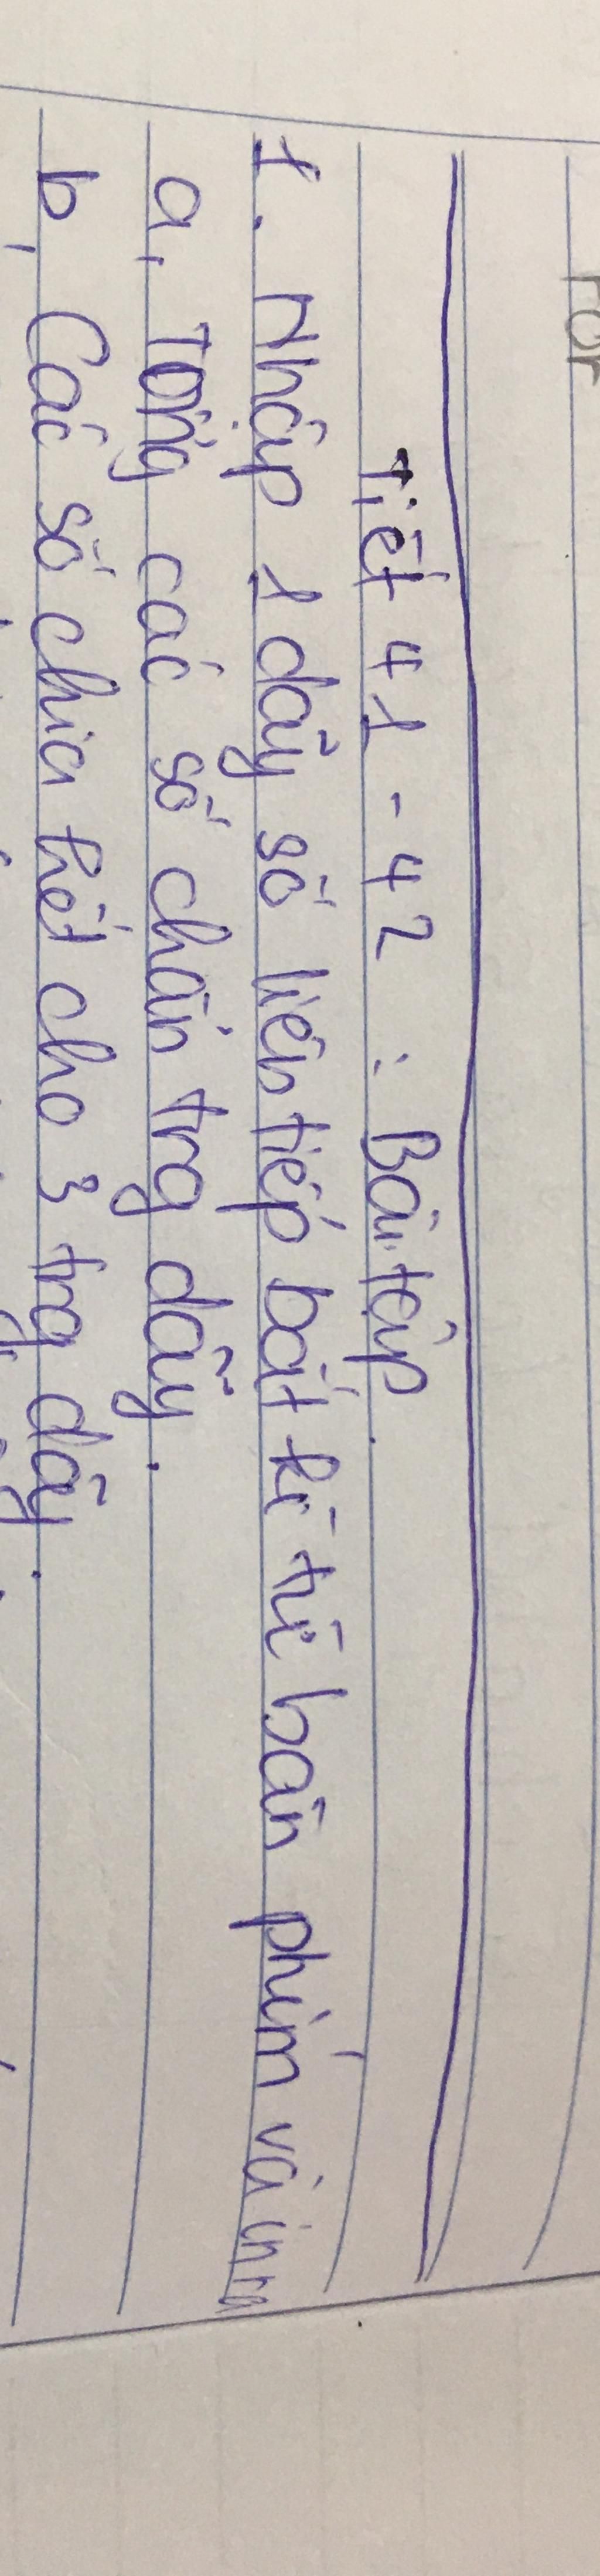 For
Tiết 41 - 42 : Bài tập.
1. Nhập 1 dãy số liên tiếp bất kì từ bàn phím và in ra
a, Tổng các số chẵn trg dãy.
b, Các số chia hết cho 3 trg dãy.